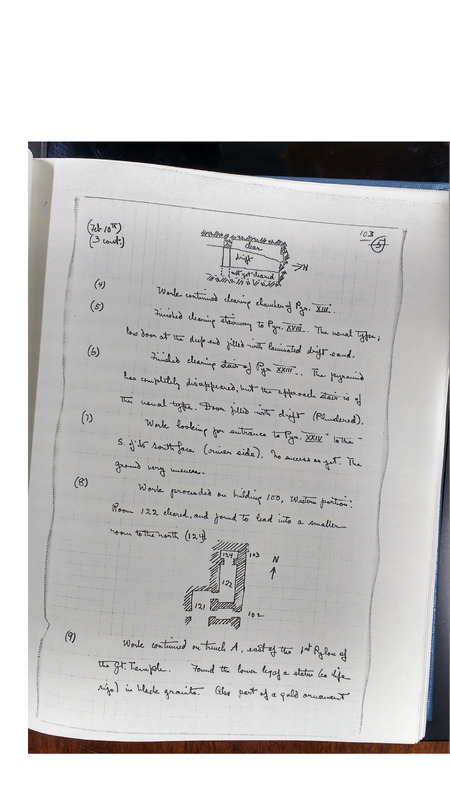 103
(5)
(Feb 10th)
(3 cont.)
clear
drift
not yet cleared
N
(4) Work continued clearing chamber of Pyr. XIII.
(5) Finished clearing stairway to Pyr. XVIII. The usual type;
low door at the deep end filled with laminated drift sand.
(6) Finished clearing stair of Pyr. XXIII. The pyramid
has completely disappeared, but the approach stair is of
the usual type. Door filled with drift (Plundered).
(7) Work looking for entrance to Pyr. XXIV to the
S. of its south face (river side). No success as yet. The
ground very uneven.
(8) Work proceeded on building 100, Western portion:
Room 122 cleared, and found to lead into a smaller
room to the north (124).
124
103
N
122
121
102
(9) Work continued on trench A, east of the 1st Pylon of
the Gt. Temple. Found the lower leg of a statue (ca life
size) in black granite. Also part of a gold ornament